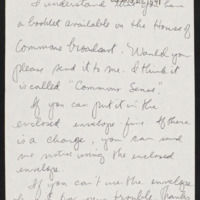 I understand you have
a booklet available on the House of
Commons broadcast. Would you
please send it to me. I think it
is called "Commons Sense".
If you can put it in the
enclosed envelope fine. If there
is a charge, you can send
me notice using the enclosed
envelope
If you can't use the envelope